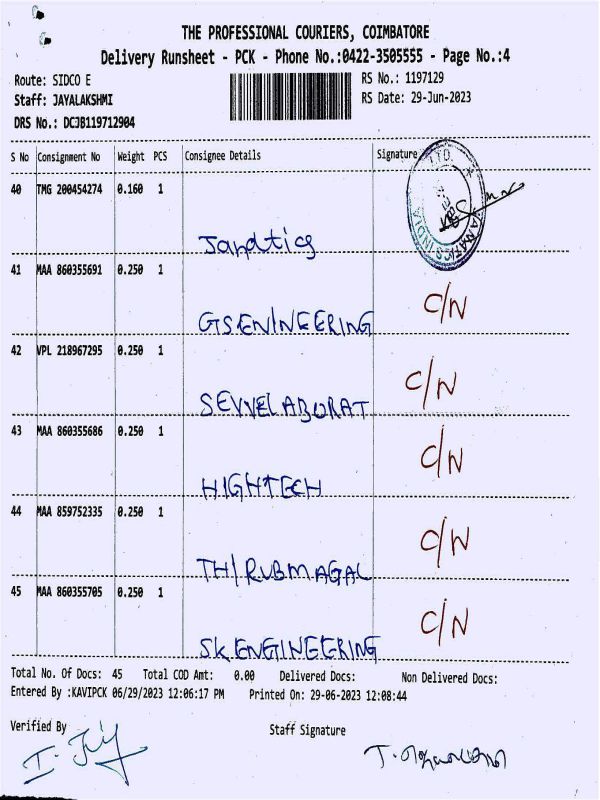 THE PROFESSIONAL COURIERS, COIMBATORE
Delivery Runsheet - PCK - Phone No.:0422-3505555 - Page No.:4
Route: SIDCO E RS No.: 1197129
Staff: JAYALAKSHMI RS Date: 29-Jun-2023
DRS No.: DCJB119712904
S No Consignment No Weight PCS Consignee Details Signature
40 TMG 200454274 0.160 1
LTD.
41 MAA 860355691 0.250 1
C/N
GSENINEERING
42 VPL 218967295 0.250 1
C/N
SEVVELABORAT
43 MAA 860355686 0.250 1
C/N
HIGHTECH
44 MAA 859752335 0.250 1
C/N
THIRUBMAGAL
45 MAA 860355705 0.250 1
C/N
SK ENGINEERING
Total No. Of Docs: 45 Total COD Amt: 0.00 Delivered Docs: Non Delivered Docs:
Entered By :KAVIPCK 06/29/2023 12:06:17 PM Printed On: 29-06-2023 12:08:44
Verified By Staff Signature